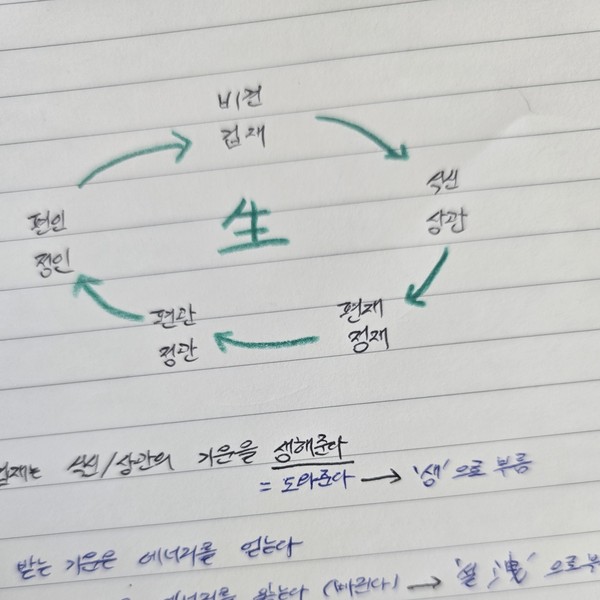 비견
겁재
식신
상관
편재
정재
편관
정관
편인
정인
生
겁재는 식신/상관의 기운을 생해준다
= 도와준다 → '생'으로 부름
받는 기운은 에너지를 얻는다
에너지를 → '설 洩' 으로 부